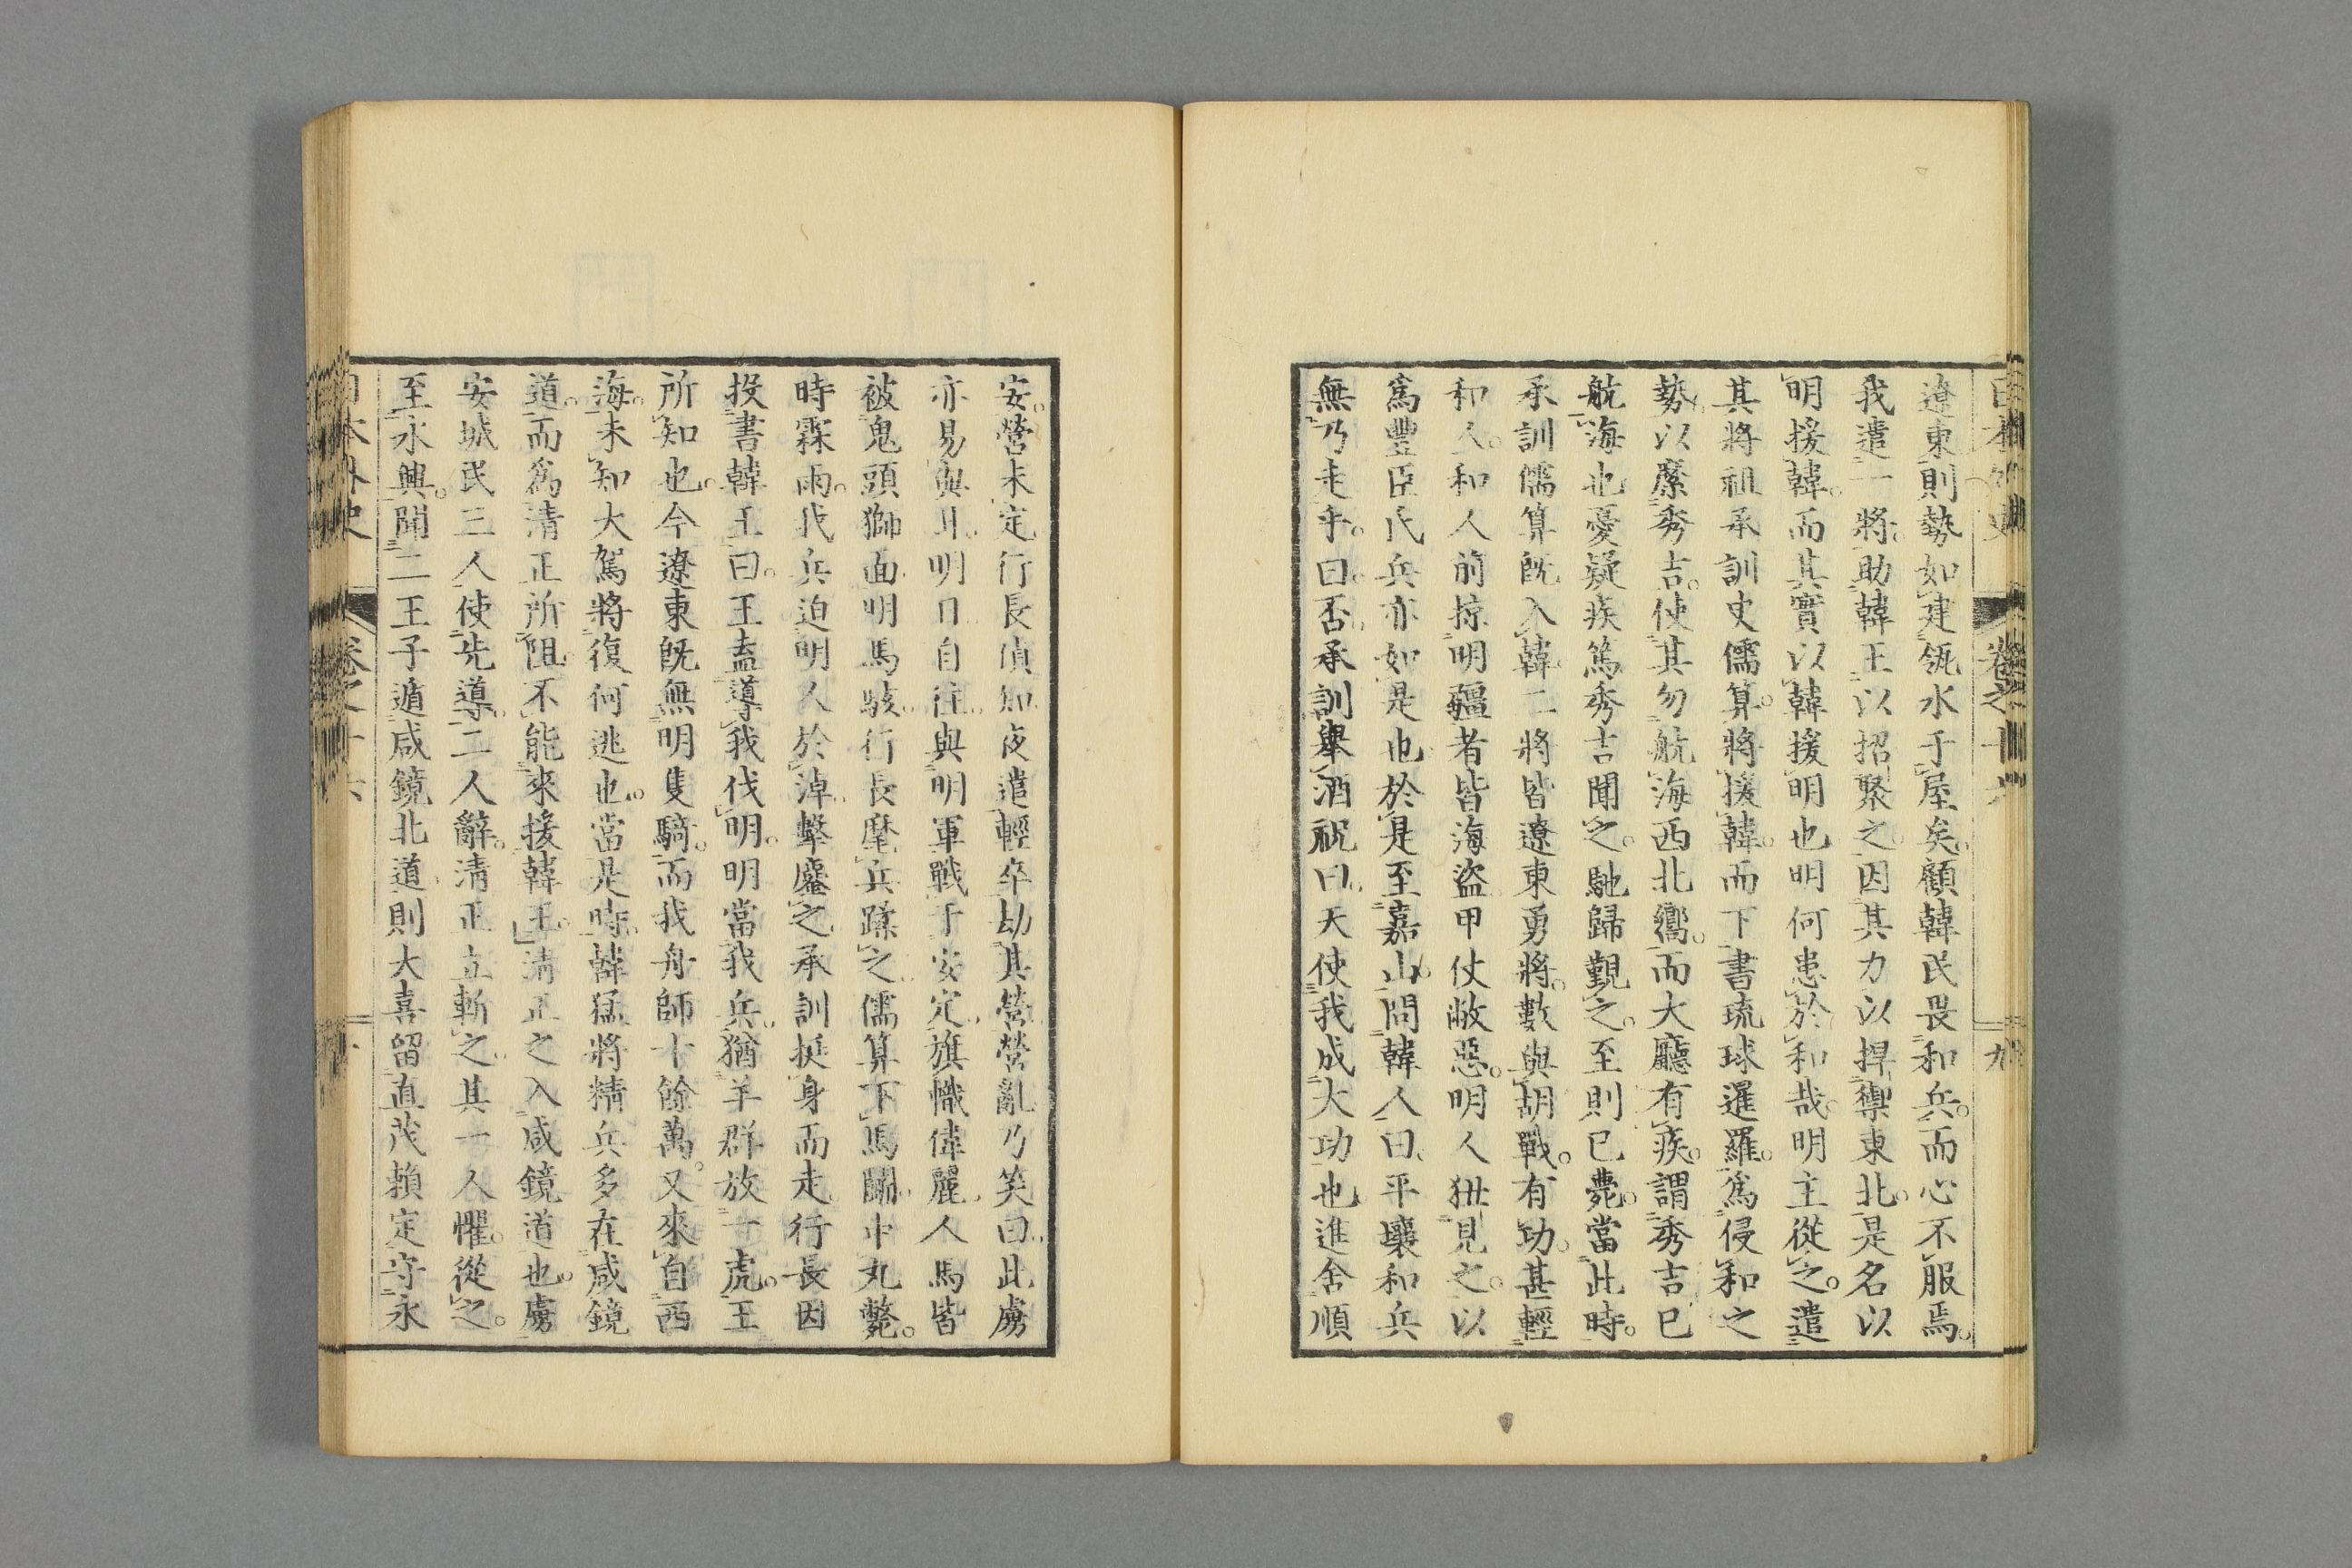 日本外史 卷之十六 九
遼東則勢如建瓴水于屋矣顧韓民畏和兵。而心不服焉。
我遣一將。助韓王以招聚之。因其力以捍禦東北。是名以
明援韓。而其實以韓援明也明何患於和哉。明主從之。遣
其將祖承訓史儒算。將援韓。而下書琉球暹羅。爲侵和之
勢。以縻秀吉。使其勿航海西北嚮。而大廳有疾。謂秀吉已
航海也憂疑疾篤秀吉聞之。馳歸覲之。至則已薨。當此時。
承訓儒算既入韓。二將皆遼東勇將。數與胡戰。有功。甚輕
和人。和人前掠明疆者皆海盜甲仗敝惡。明人狃見之。以
爲豐臣氏兵亦如是也於是至嘉山。問韓人曰。平壤和兵
無乃走乎。曰。否。承訓舉酒祝曰。天使我成大功也進舍順
安。營未定。行長偵知夜遣輕卒劫其營營亂乃笑曰。此虜
亦易與耳。明日自往與明軍戰于安定。旗幟偉麗。人馬皆
被鬼頭獅面。明馬駭。行長麾兵蹂之。儒算下馬鬭。中丸斃。
時霖雨。我兵迫明人於淖。擊鏖之。承訓挺身而走行長因
投書韓王曰。王盍導我伐明。明當我兵。猶羊群放一虎。王
所知也。今遼東既無明隻騎。而我舟師十餘萬。又來自西
海。未知大駕將復何逃也。當是時。韓猛將精兵多在咸鏡
道。而爲清正所阻。不能來援韓王。清正之入咸鏡道也。虜
安城民三人使先導。二人辭。清正立斬之。其一人懼。從之。
至永興。聞二王子遁咸鏡北道則大喜留直茂賴定守永
日本外史 卷之十六